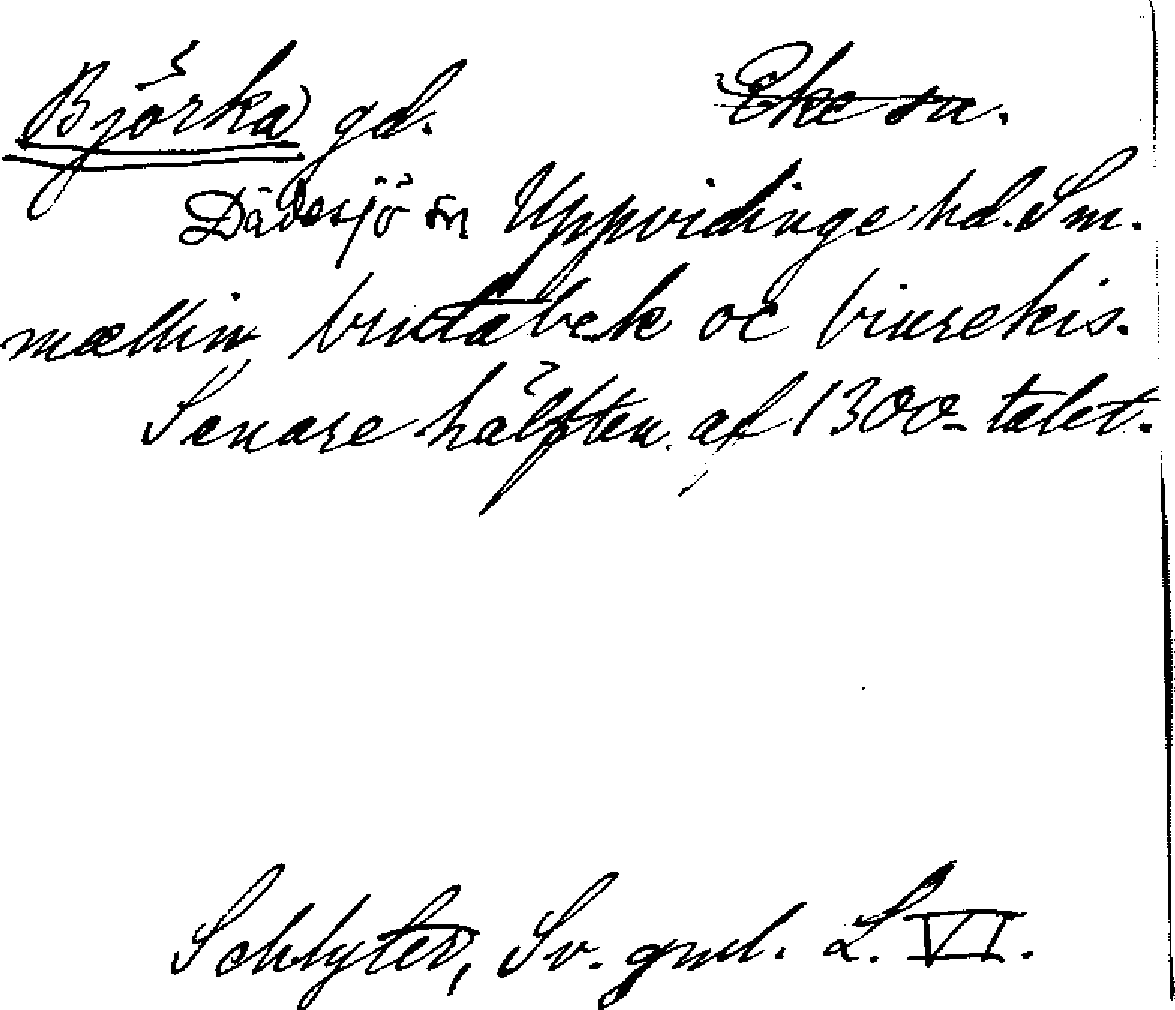 Björka gd. Eke sn.
Dädesjö sn Uppvidinge hd. Sm.
mællin brutabek oc biurekis.
Senare hälften af 1300-talet.
Schlyter, Sv. gml. L. VI.